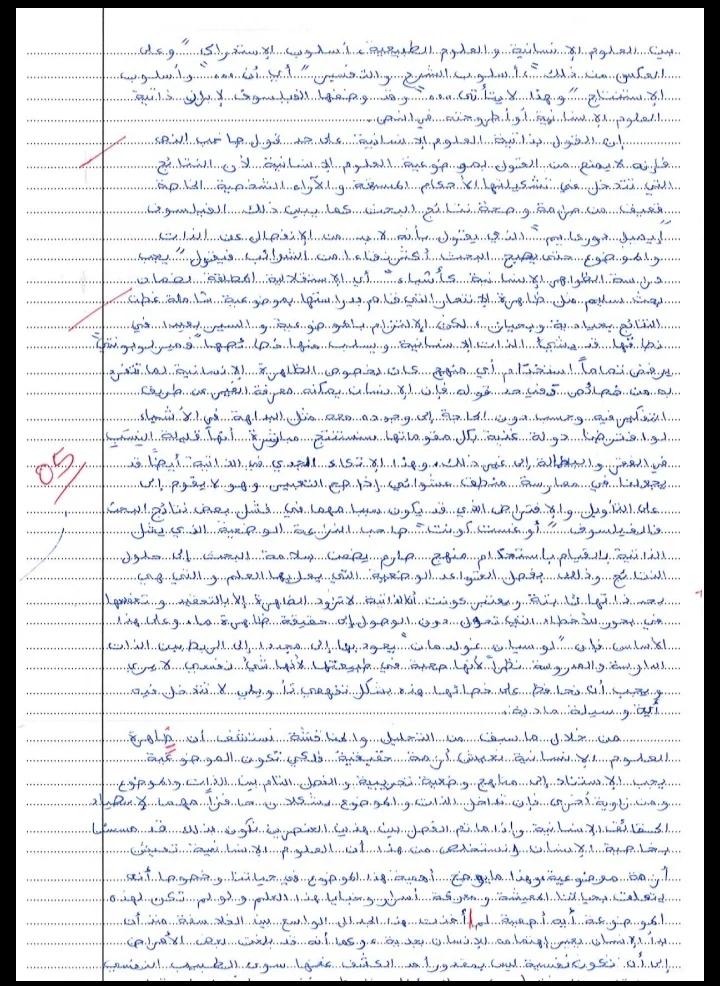 بين العلوم الإنسانية والعلوم الطبيعية، أسلوب الإستدراك "وعلى
العكس من ذلك"، أسلوب الشرح والتفسير "أي أن ...." وأسلوب
الإستنتاج "وهذا لا يتأتى ...." وقد وضفها الفيلسوف لإبراز ذاتية
العلوم الإنسانية أو أطروحته في النص.
إن القول بذاتية العلوم الإنسانية على حد قول صاحب النص
فإنه لا يمنع من القول بموضوعية العلوم الإنسانية لأن النتائج
التي تتدخل في تشكيلتها الأحكام المسبقة والآراء الشخصية الخاصة
تضعف من صرامة وصحة نتائج البحث كما يبين ذلك الفيلسوف
"إيميل دوركايم" الذي يقول بأنه لا بد من الإنفصال عن الذات
والموضوع حتى يصبح البحث أكثر نقاءا من الشوائب فيقول "يجب
دراسة الظواهر الإنسانية كأشياء" أي الاستقلالية المطلقة لضمان
بحث سليم مثل ظاهرة الإنتحار التي قام بدراستها بموضوعية شاملة غطت
النتائج بحيادية، لكن الإلتزام بالموضوعية والسير بعيدا في
نطاقها قد يشيئ الذات الإنسانية ويسلب منها خصائصها "فميرلوبونتي"
يرفض تماماً استخدام أي منهج كان بخصوص الظاهرة الإنسانية لما تتفرد
به من خصائص ففي حد قوله فإن الإنسان يمكنه معرفة الغير عن طريف
التفكير فيه وحسب دون الحاجة إلى وجوده معه مثل البداهة في الأشياء
لو افترضنا دولة غنية بكل مقوماتها سنستنتج مباشرة أنها قليلة النسب
في الفقر والبطالة إلى غير ذلك، وهذا الإتكاء الجدي في الذاتية أيضاً قد
يجعلنا في ممارسة منطق عشوائي إذا صح التعبير وهو لا يقوم إلى
على التأويل والإفتراض الذي قد يكون سببا مهما في فشل بعض نتائج البحث
فالفيلسوف "أوغست كونت" صاحب النزعة الوضعية الذي
الذاتية بالقيام باستحكام منهج صارم يضمن سلامة البحث إلى حلول
النتائج وذلك بفضل القواعد الوضعية التي يمليها العلم والتي هي
بحد ذاتها ثابتة ويعتبر كونت أن الذاتية لا تزود الظاهرة إلا بالتعقيد و
في بحور للأخطاء التي تحول دون الوصول إلى حقيقة ظاهرة ما، وعلى هذا
الأساس فإن "لوسيان غولدمان" يعود بها إلى مجددا إلى الربط بين الذات
الدارسة والمدروسة نظراً لأنها صعبة في طبيعتها لأنها شيئ نفسي لا يرى
ويجب أن نحافظ على خصائها هذه بشكل تفهمي تأويلي لا تتدخل فيه
أية وسيلة مادية.
من خلال ما سبق من التحليل والمناقشة نستشف أن ظاهرة
العلوم الإنسانية تعيش أزمة حقيقية فلكي تكون الموضوعية
يجب الإستناد إلى مناهج وضعية تجريبية والفصل التام بين الذات والموضوع
ومن زاوية أخرى فإن تداخل الذات والموضوع يشكلان حافزاً مهما لإصطياد
الحقائق الإنسانية وإذا ما تم الفصل بين هذين العنصرين نكون بذلك قد مسسنا
بخاصية الإنسان ونستخلص من هذا أن العلوم الإنسانية تعيش
أزمة موضوعية وهذا ما يوضح أهمية هذا الموضوع في حياتنا وخصوصا أنه
يتعلق بحياتنا المعيشة ومعرفة أسرار وخبايا هذا العلم ولو لم تكن لهذه
الموضوعة أية أهمية لما أخذت هذا الجدال الواسع بين الفلاسفة منذ أن
بدأ الإنسان يعير إهتمامه للإنسان بعديه، وكما أنه قد بلغت بعض الأمراض
إلى أن تكون نفسية ليس بمقدور أحد الكشف عنها سوى الطبيب النفسي
05